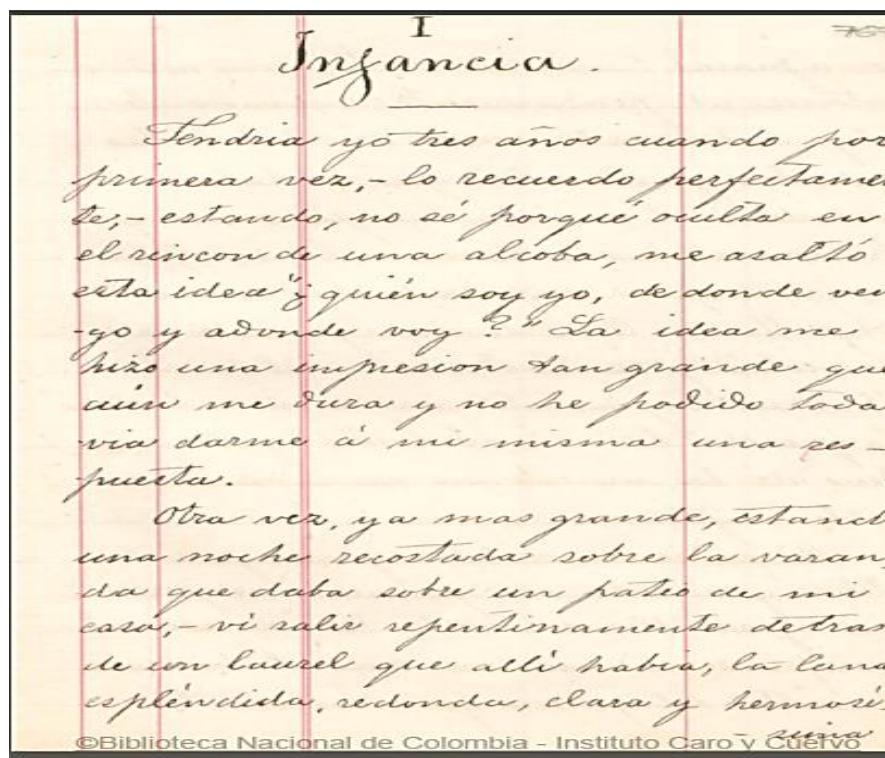 I
Infancia.
Tendria yo tres años cuando por
primera vez,- lo recuerdo perfectamen
te,- estando, no sé porqué oculta en
el rincon de una alcoba, me asaltó
esta idea "¿quién soy yo, de donde ven
-go y adonde voy?" La idea me
hizo una impresion tan grande que
aún me dura y no he podido toda
via darme á mi misma una res-
puesta.
Otra vez, ya mas grande, estand
una noche recostada sobre la varan
da que daba sobre un patio de mi
casa,- vi salir repentinamente detras
de un laurel que allí habia, la luna
espléndida, redonda, clara y hermosí
-sima
©Biblioteca Nacional de Colombia - Instituto Caro y Cuervo